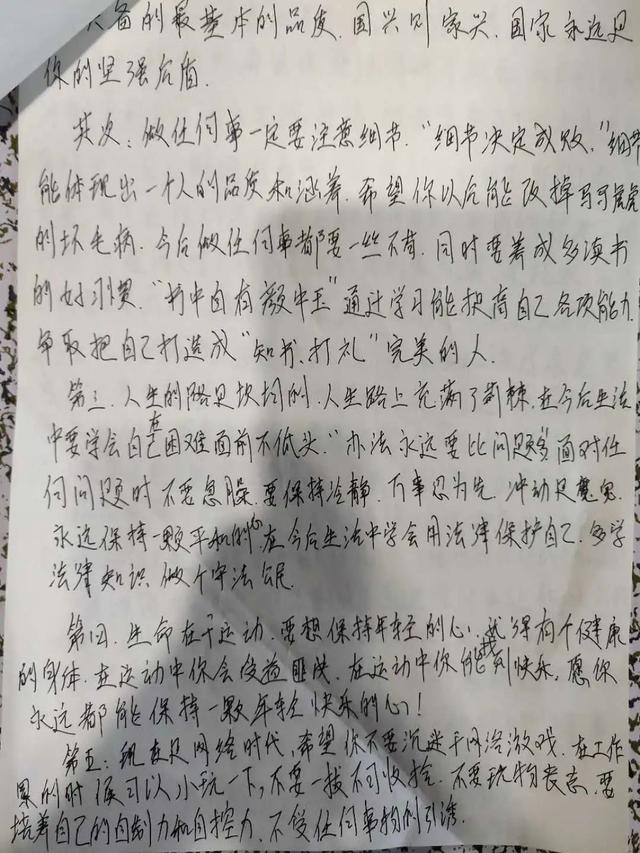 具备的最基本的品质.国兴则家兴.国家永远是
你的坚强后盾.
其次:做任何事一定要注意细节."细节决定成败,"细节
能体现出一个人的品质和涵养.希望你以后能改掉马马虎虎
的坏毛病.今后做任何事都要一丝不苟.同时要养成多读书
的好习惯."书中自有颜中玉"通过学习能提高自己各项能力.
争取把自己打造成"知书、打礼"完美的人.
第三.人生的路是坎坷的.人生路上充满了荆棘.在今后生活
中要学会自己在困难面前不低头."办法永远要比问题多"面对任
何问题时不要急躁.要保持冷静.万事忍为先.冲动是魔鬼.
永远保持一颗平和的心.在今后生活中学会用法律保护自己.多学
法律知识.做个守法公民.
第四.生命在于运动.要想保持年轻的心.就得有个健康
的身体.在运动中你会受益匪浅.在运动中你能找到快乐.愿你
永远都能保持一颗年轻快乐的心!
第五:现在是网络时代,希望你不要沉迷于网络游戏.在工作
累的时候可以小玩一下,不要一拔不可收拾.不要玩物丧志.要
培养自己的自制力和自控力.不受任何事物的引诱.